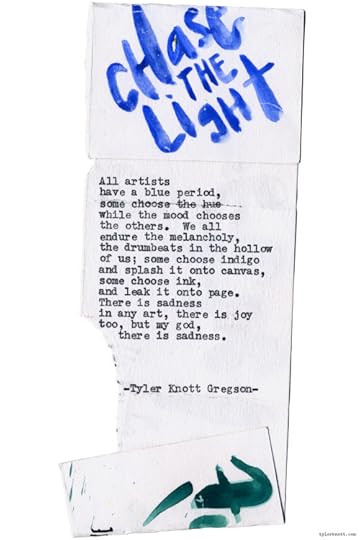 CHASE
THE
LIGHT
All artists
have a blue period,
some choose the hue
while the mood chooses
the others. We all
endure the melancholy,
the drumbeats in the hollow
of us; some choose indigo
and splash it onto canvas,
some choose ink,
and leak it onto page.
There is sadness
in any art, there is joy
too, but my god,
there is sadness.
-Tyler Knott Gregson-
tylerknott.com